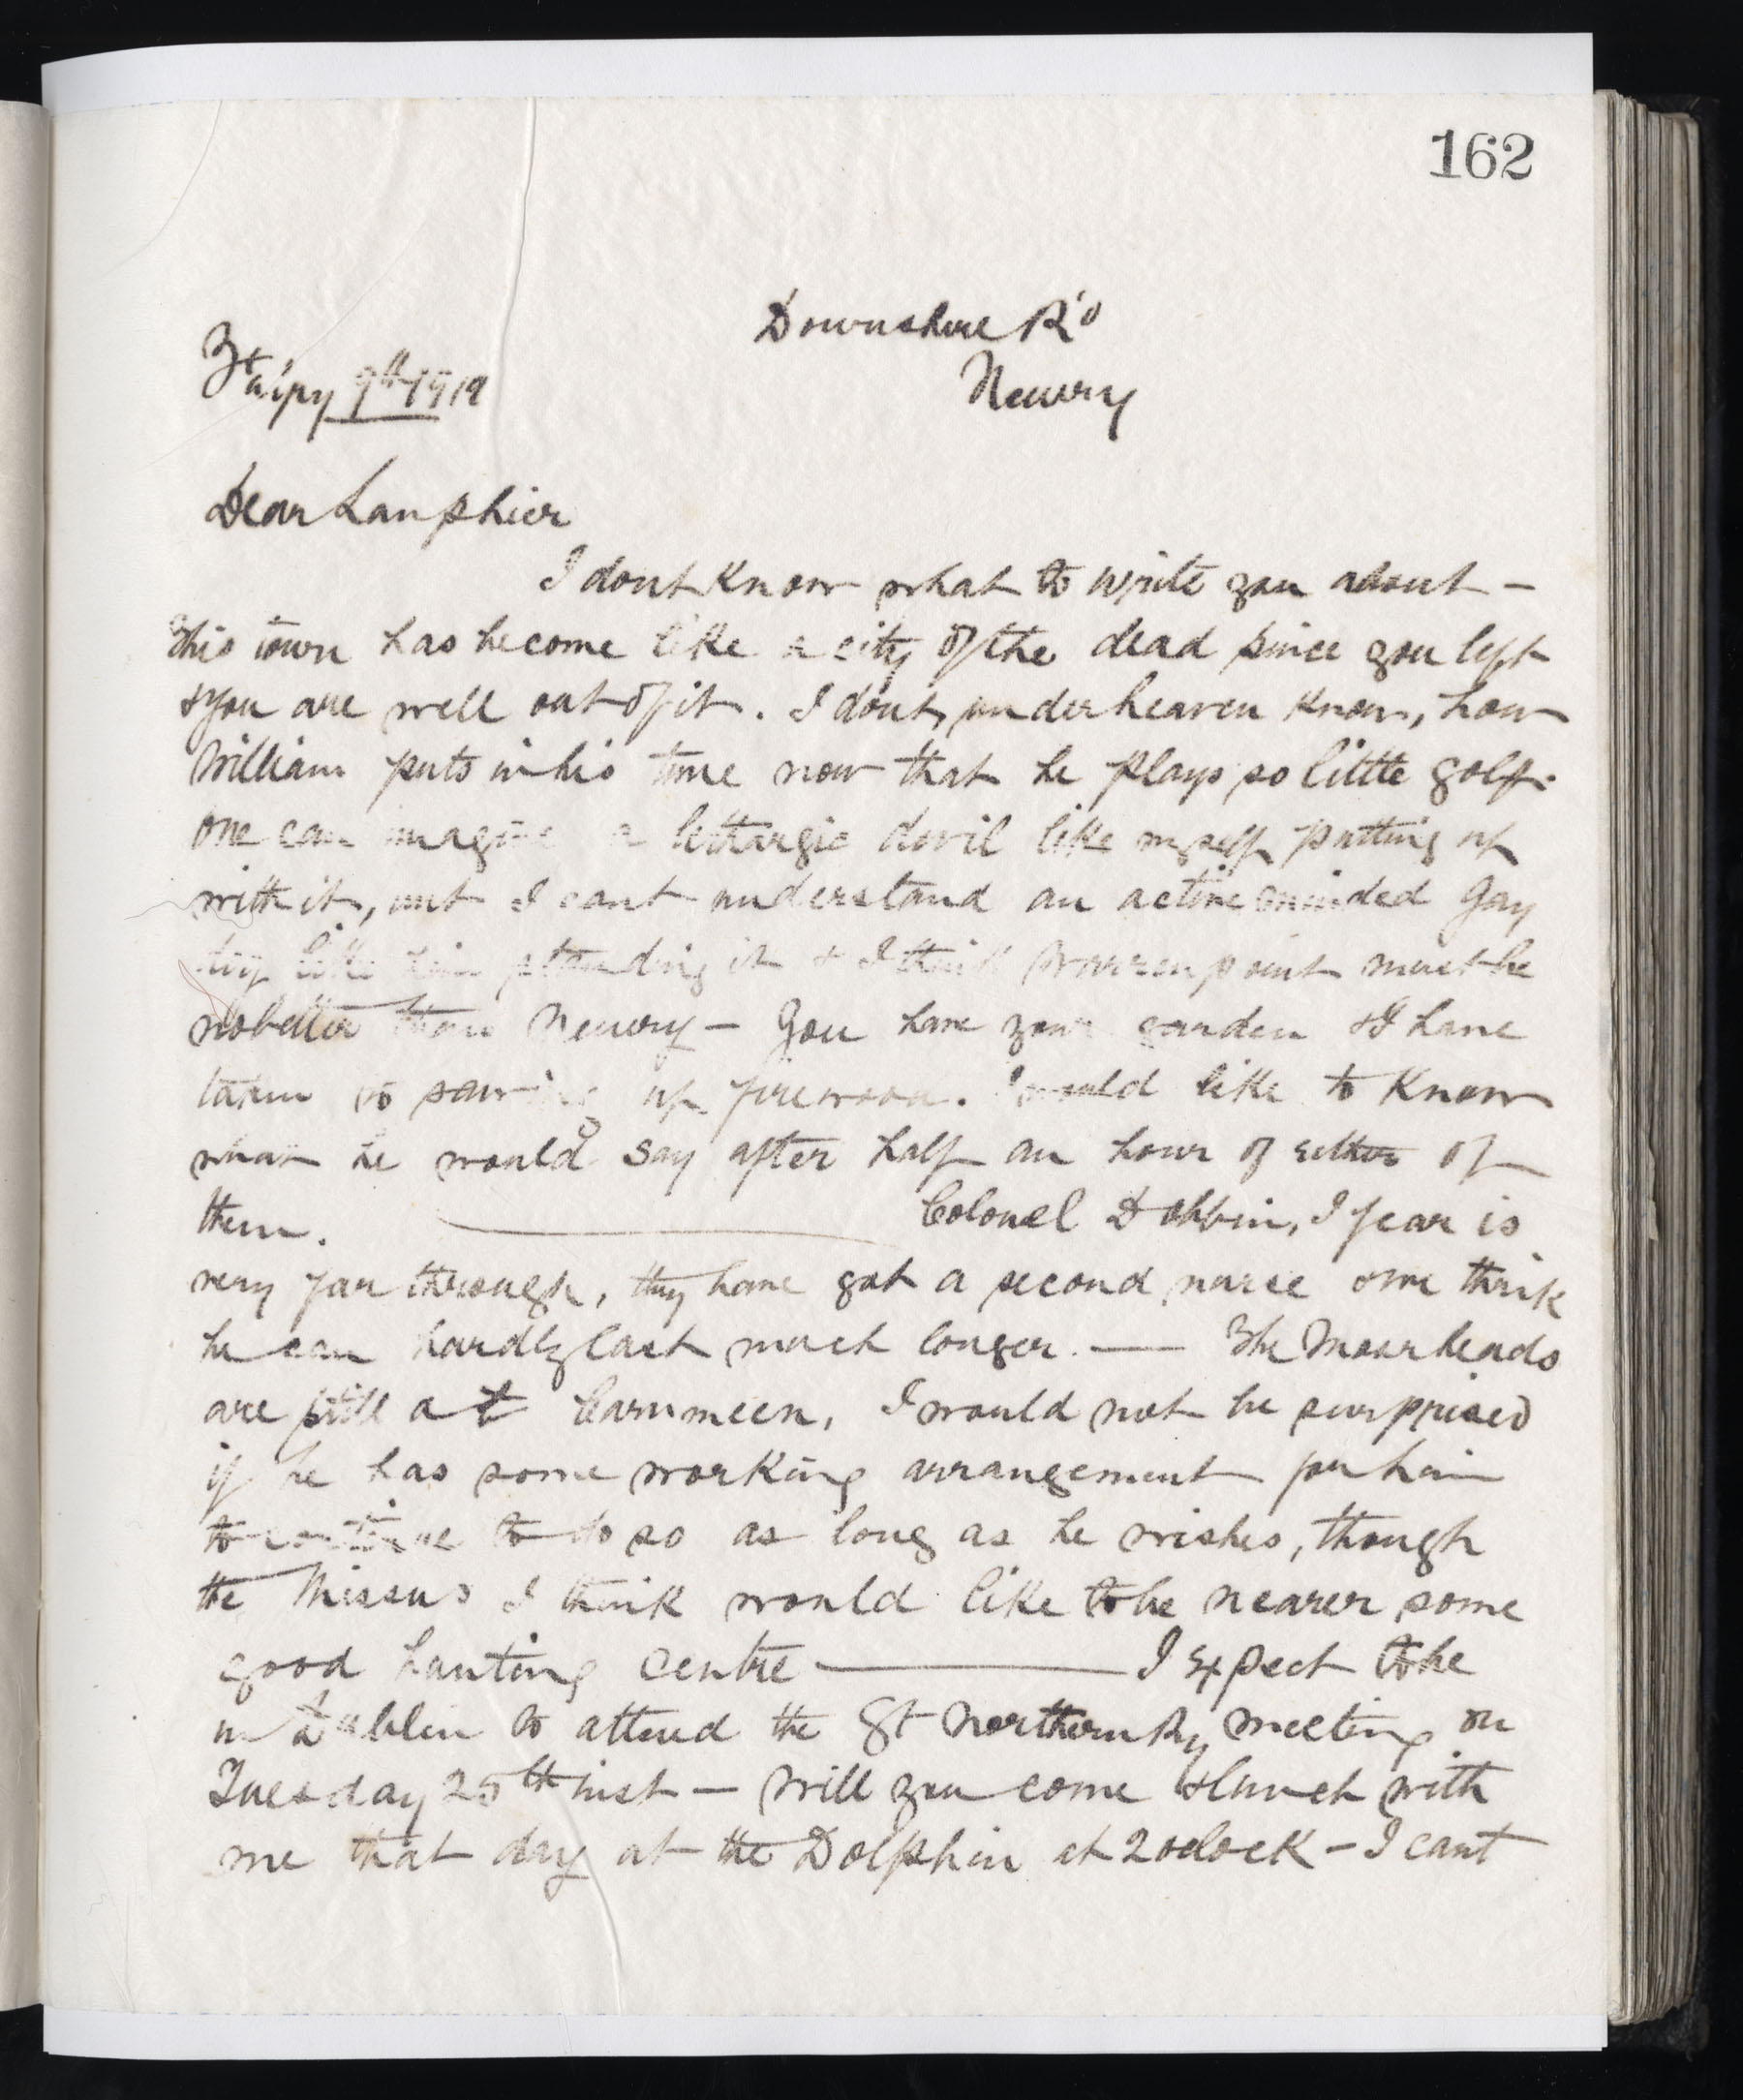 162
Downshire Rd
Newry
9th 1919
Dear Lanphier
I dont know what to write you about —
This town has become like a city of the dead since you left
& you are well out of it. I dont, under heaven know, how
William puts in his time now that he plays so little golf.
one can imagine a lethargic devil like myself putting up
with it, but I cant understand an active minded gay
like him standing it & I think Warrenpoint must be
no better than Newry — You have your garden & I have
taken to sawing up firewood. I would like to know
what he would say after half an hour of either of
them. — Colonel Dobbin, I fear is
very far through, they have got a second nurse & think
he can hardly last much longer. — The Moorheads
are still at Carnmeen, I would not be surprised
if he has some working arrangement for him
to continue to do so as long as he wishes, though
the Missus I think would like to be nearer some
good hunting centre — I expect to be
in Dublin to attend the Gt Northern Ry meeting on
Tuesday 25th inst — Will you come & lunch with
me that day at the Dolphin at 2 oclock — I cant